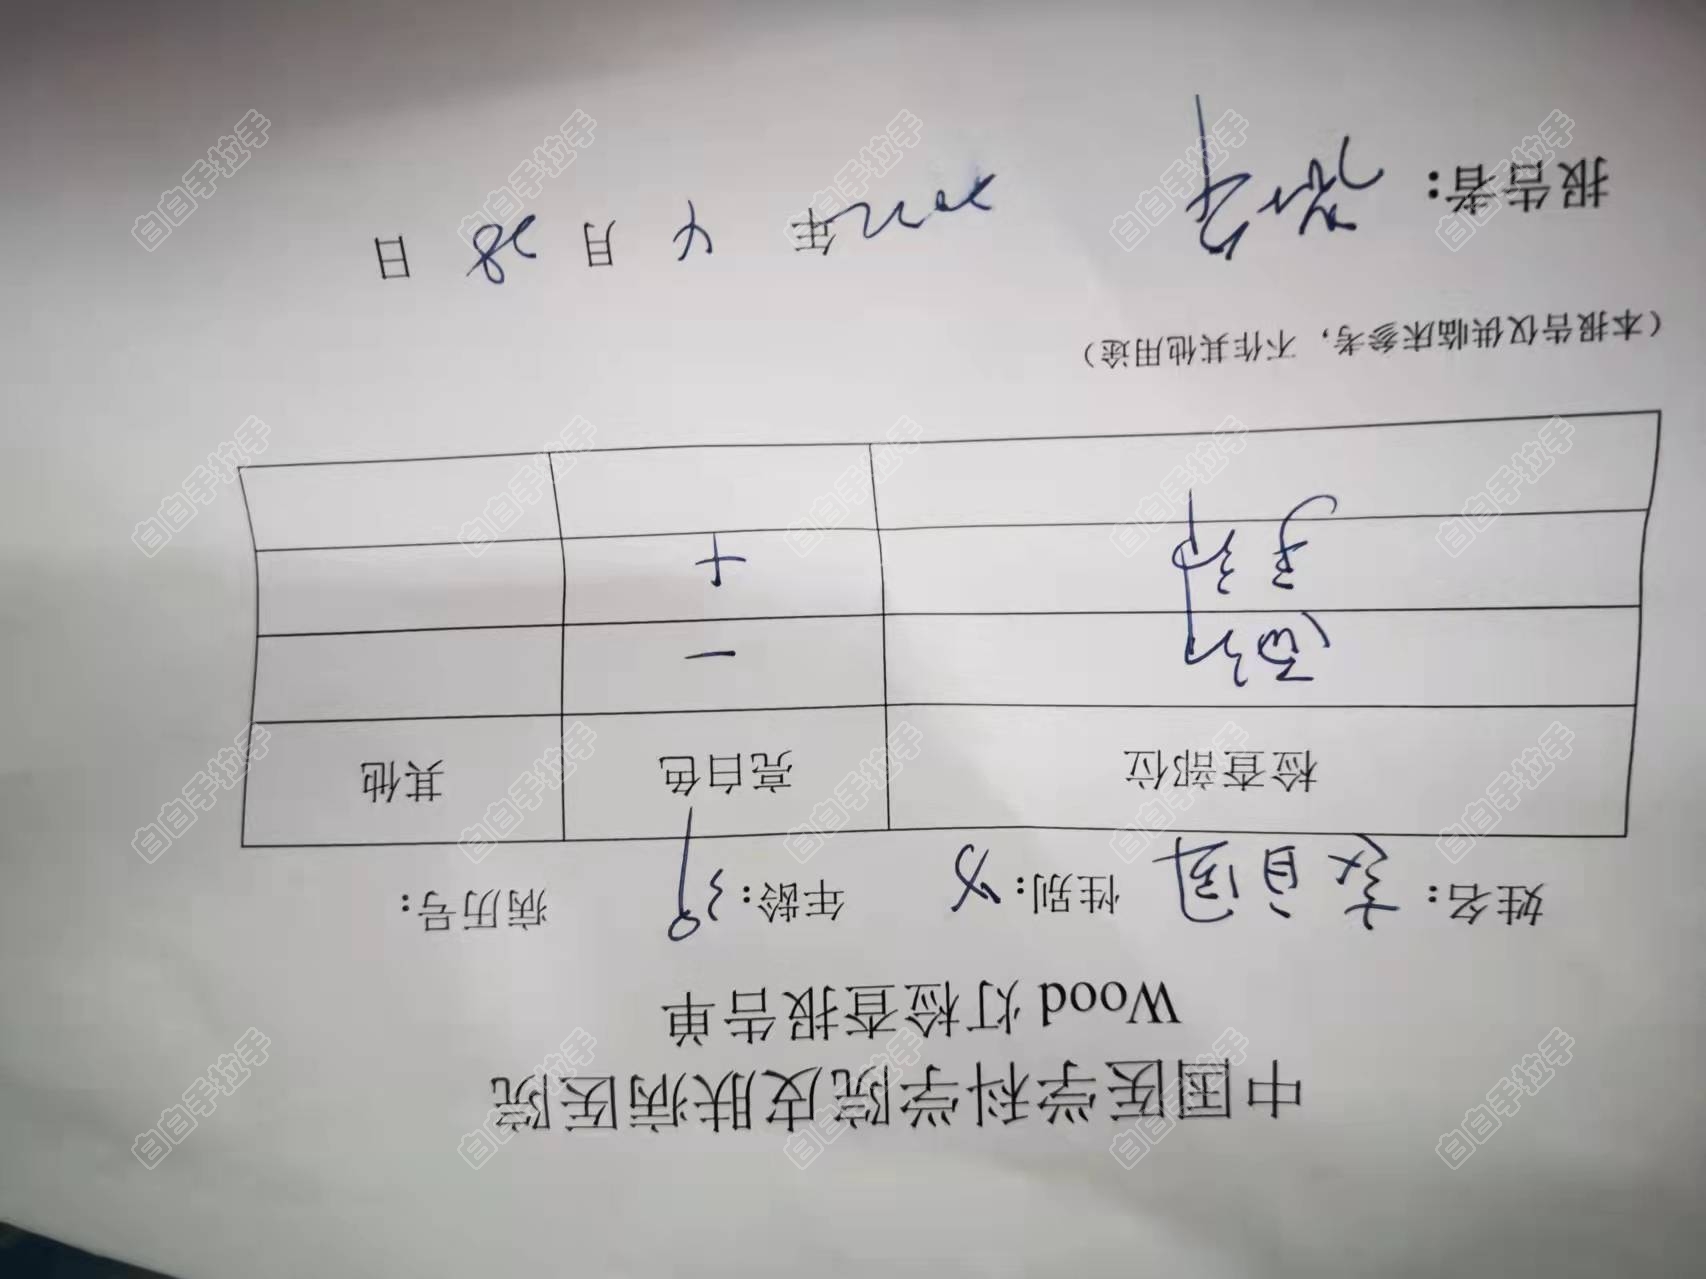 中国医学科学院皮肤病医院
Wood 灯检查报告单
姓名： 性别：女 年龄：39 病历号：
检查部位 亮白色 其他
面部 −
手部 +
（本报告仅供临床参考，不作其他用途）
报告者： 年 4 月 28 日
白白手拉手